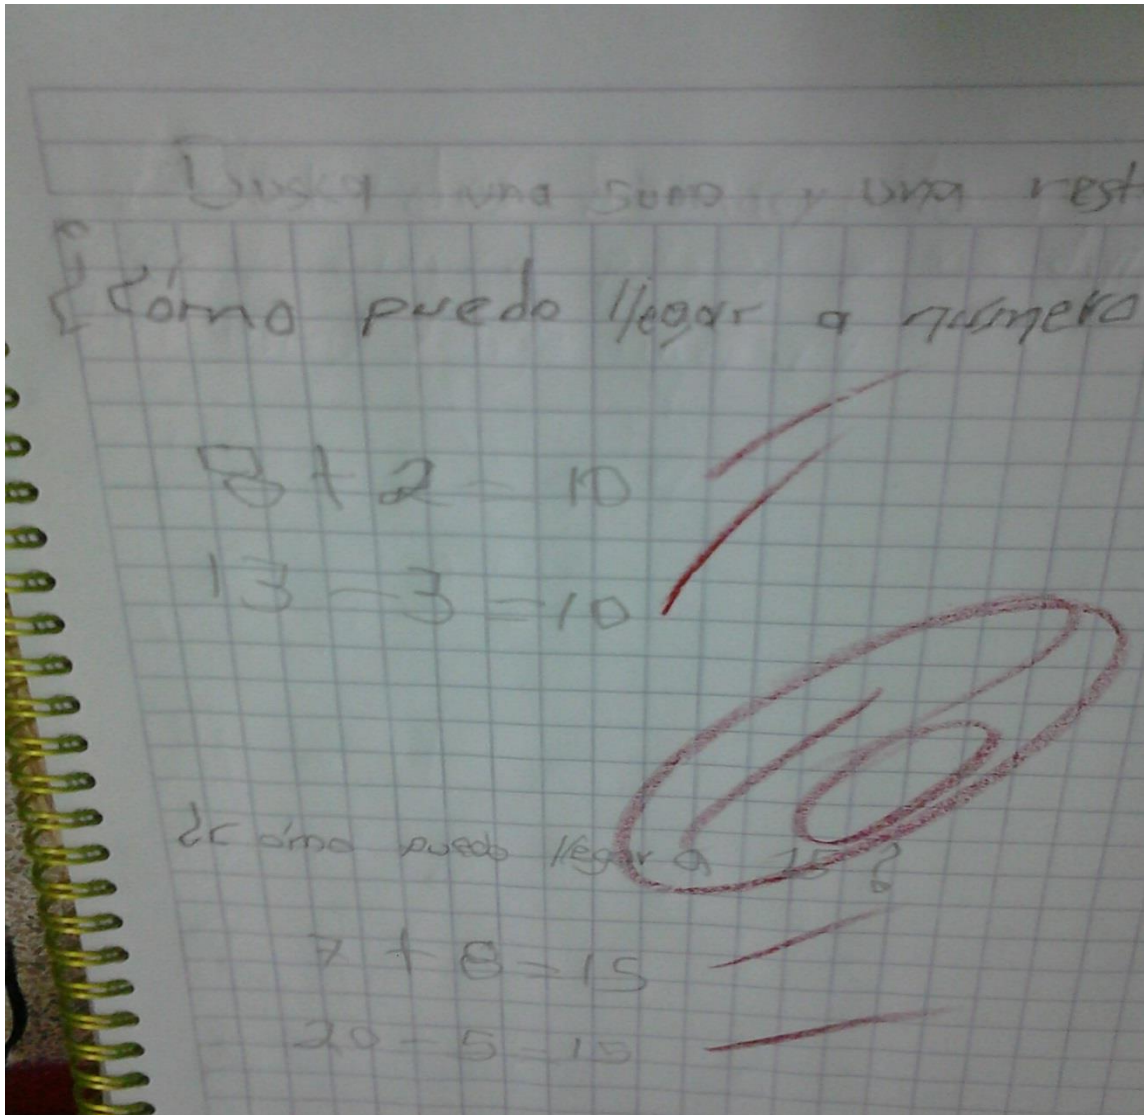 Busca una suma y una rest
¿Cómo puedo llegar a número
8 + 2 = 10
13 - 3 = 10
10
¿Cómo puedo llegar a 15?
7 + 8 = 15
20 - 5 = 15